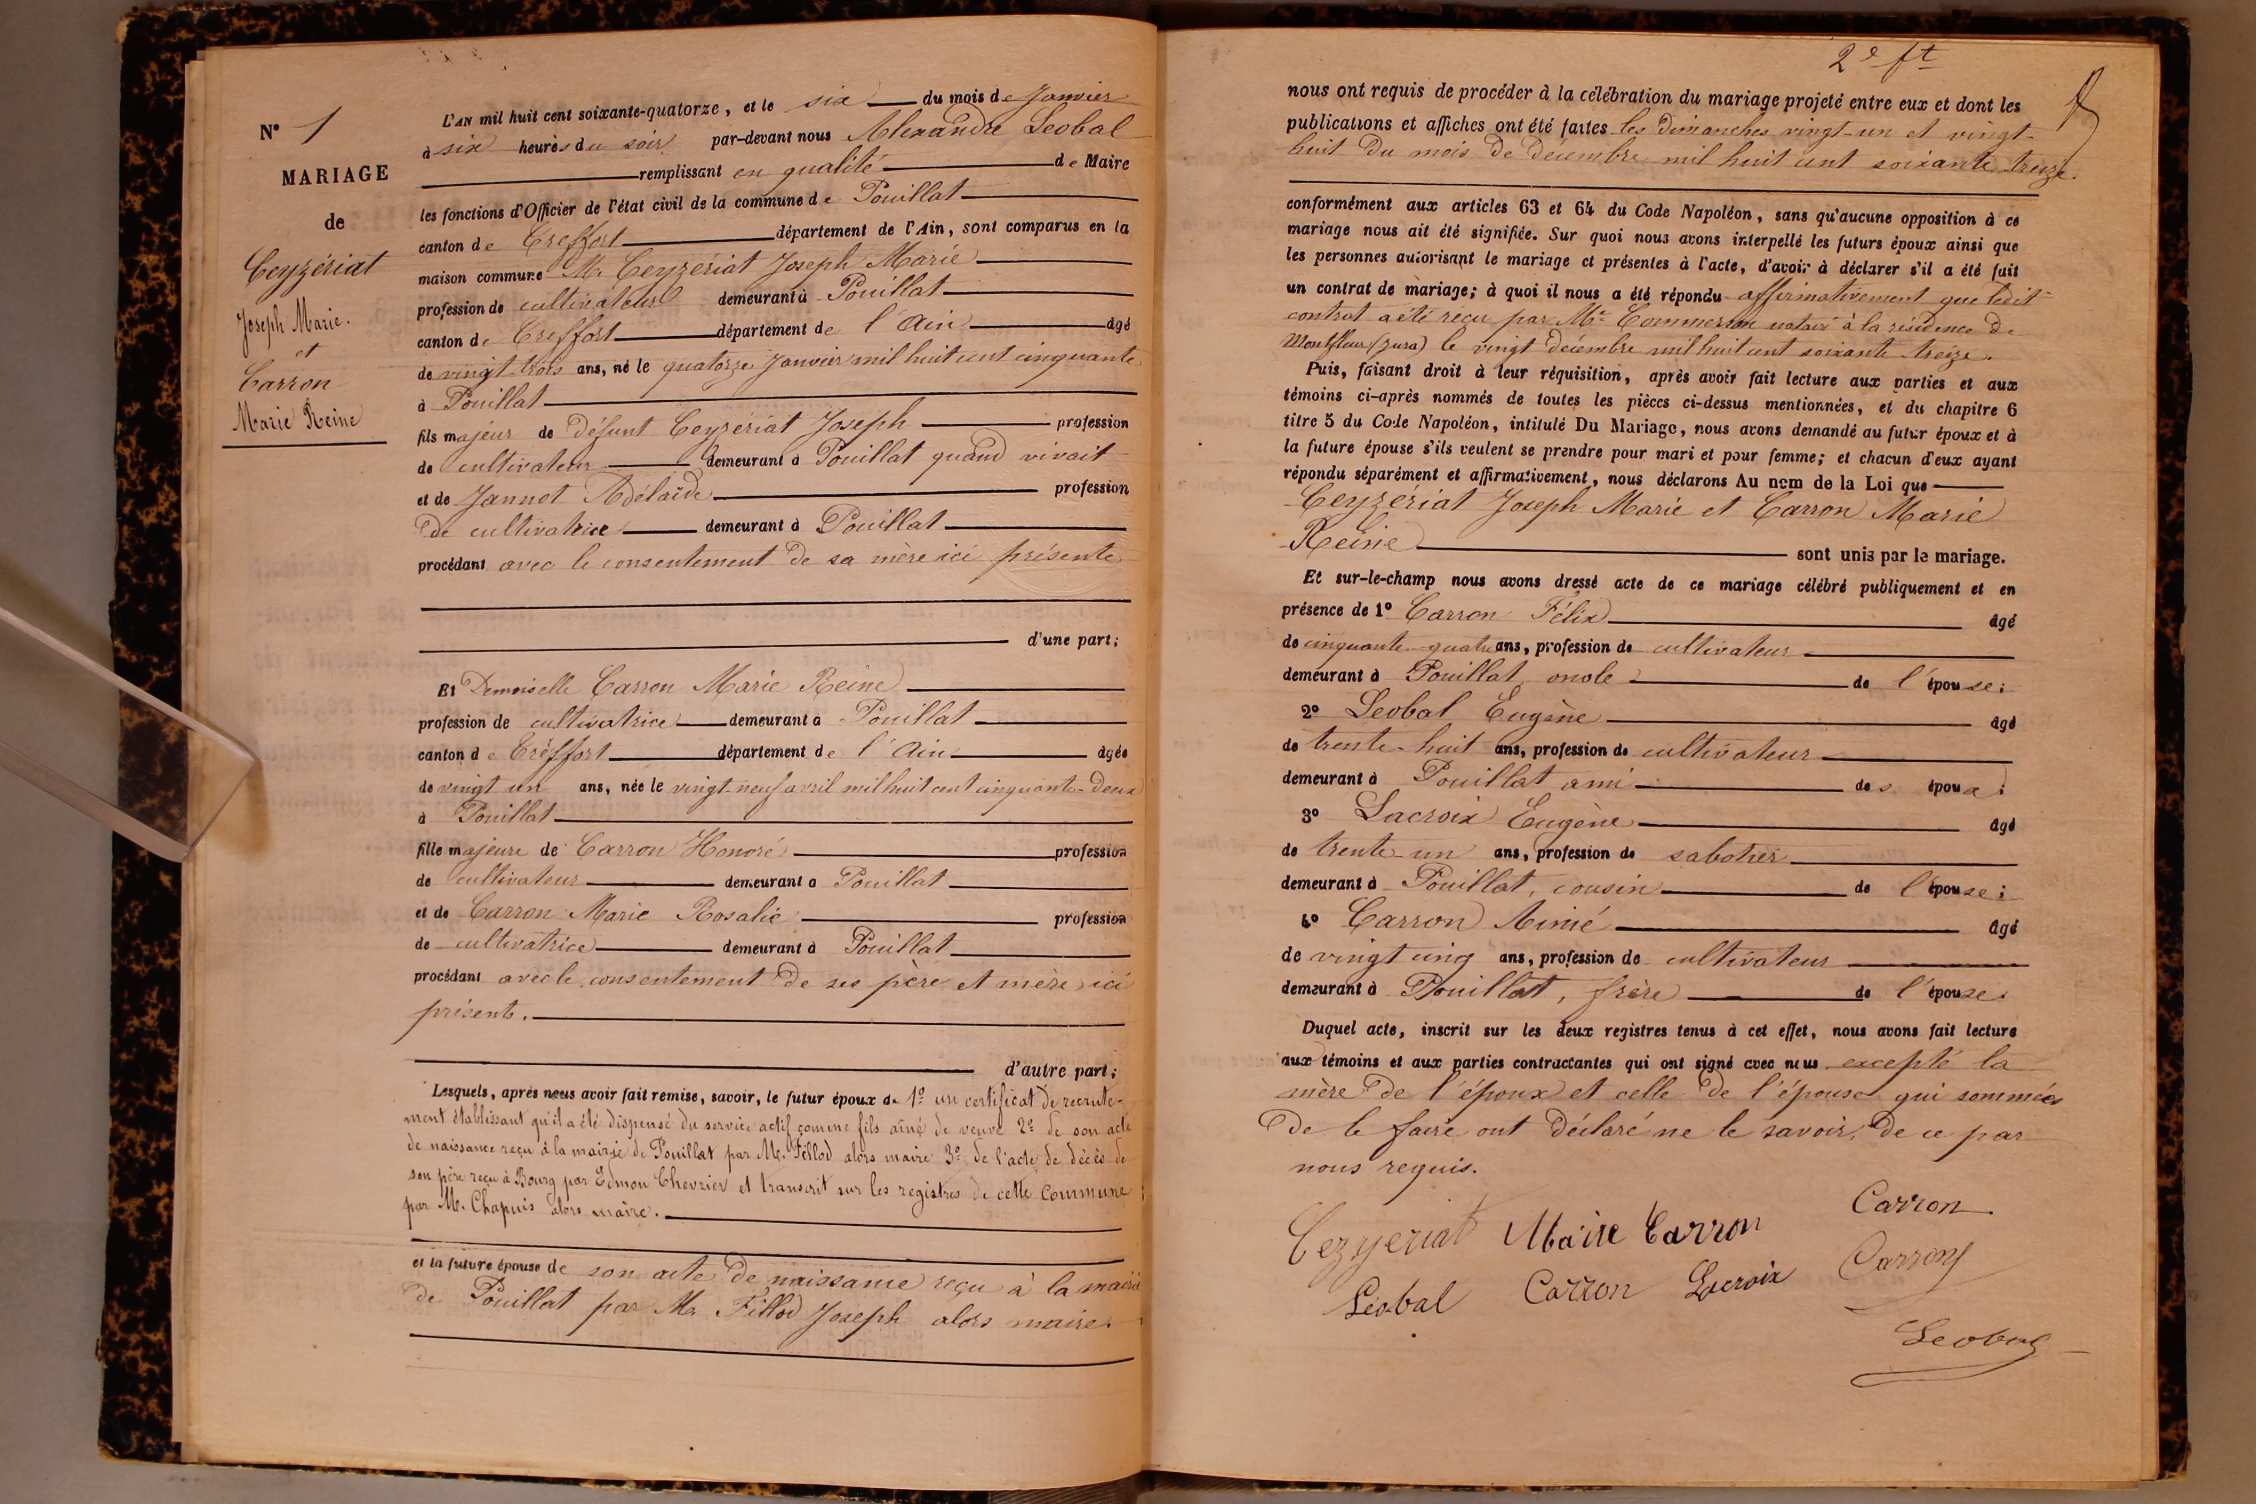 N° 1
MARIAGE
de
Ceyzériat
Joseph Marie.
et
Carron
Marie Reine
L'AN mil huit cent soixante-quatorze, et le six du mois de Janvier
à six heures du soir par-devant nous Alexandre Léobal
remplissant en qualité de Maire
les fonctions d'Officier de l'état civil de la commune de Pouillat
canton de Treffort département de l'Ain, sont comparus en la
maison commune Mr Ceyzériat Joseph Marie
profession de cultivateur demeurant à Pouillat
canton de Treffort département de l'Ain âgé
de vingt trois ans, né le quatorze Janvier mil huit cent cinquante
à Pouillat
fils majeur de défunt Ceyzériat Joseph profession
de cultivateur demeurant à Pouillat quand vivait
et de Jannot Adélaïde profession
de cultivatrice demeurant à Pouillat
procédant avec le consentement de sa mère ici présente
d'une part;
Et Demoiselle Carron Marie Reine
profession de cultivatrice demeurant à Pouillat
canton de Treffort département de l'Ain âgée
de vingt un ans, née le vingt-neuf avril mil huit cent cinquante-deux
à Pouillat
fille majeure de Carron Honoré profession
de cultivateur demeurant à Pouillat
et de Carron Marie Rosalie profession
de cultivatrice demeurant à Pouillat
procédant avec le consentement de ses père et mère ici
présents.
d'autre part;
Lesquels, après nous avoir fait remise, savoir, le futur époux de 1° un certificat de recrute-
ment établissant qu'il a été dispensé du service actif comme fils aîné de veuve 2° de son acte
de naissance reçu à la mairie de Pouillat par Mr. Fillod alors maire 3° de l'acte de décès de
son père reçu à Bourg par Edmon Chevrier et transcrit sur les registres de cette commune
par Mr. Chapuis alors maire.
et la future épouse de son acte de naissance reçu à la mairie
de Pouillat par Mr Fillod Joseph alors maire.
2e ft
nous ont requis de procéder à la célébration du mariage projeté entre eux et dont les
publications et affiches ont été faites les dimanches vingt-un et vingt-
huit du mois de décembre mil huit cent soixante treize.
conformément aux articles 63 et 64 du Code Napoléon, sans qu'aucune opposition à ce
mariage nous ait été signifiée. Sur quoi nous avons interpellé les futurs époux ainsi que
les personnes autorisant le mariage et présentes à l'acte, d'avoir à déclarer s'il a été fait
un contrat de mariage; à quoi il nous a été répondu affirmativement que ledit
contrat a été reçu par Me Commerson notaire à la résidence de
Montfleur (Jura) le vingt décembre mil huit cent soixante treize.
Puis, faisant droit à leur réquisition, après avoir fait lecture aux parties et aux
témoins ci-après nommés de toutes les pièces ci-dessus mentionnées, et du chapitre 6
titre 5 du Code Napoléon, intitulé Du Mariage, nous avons demandé au futur époux et à
la future épouse s'ils veulent se prendre pour mari et pour femme; et chacun d'eux ayant
répondu séparément et affirmativement, nous déclarons Au nom de la Loi que
Ceyzériat Joseph Marie et Carron Marie
Reine sont unis par le mariage.
Et sur-le-champ nous avons dressé acte de ce mariage célébré publiquement et en
présence de 1° Carron Félix âgé
de cinquante-quatre ans, profession de cultivateur
demeurant à Pouillat oncle de l'épouse;
2° Léobal Eugène âgé
de trente-huit ans, profession de cultivateur
demeurant à Pouillat ami des époux;
3° Lacroix Eugène âgé
de trente-un ans, profession de sabotier
demeurant à Pouillat, cousin de l'épouse;
4° Carron Aimé âgé
de vingt cinq ans, profession de cultivateur
demeurant à Pouillat, frère de l'épouse.
Duquel acte, inscrit sur les deux registres tenus à cet effet, nous avons fait lecture
aux témoins et aux parties contractantes qui ont signé avec nous excepté la
mère de l'époux et celle de l'épouse qui sommées
de le faire ont déclaré ne le savoir, de ce par
nous requis.
Cezyeriat Marie Carron Carron
Léobal Carron Lacroix Carron
Léobal